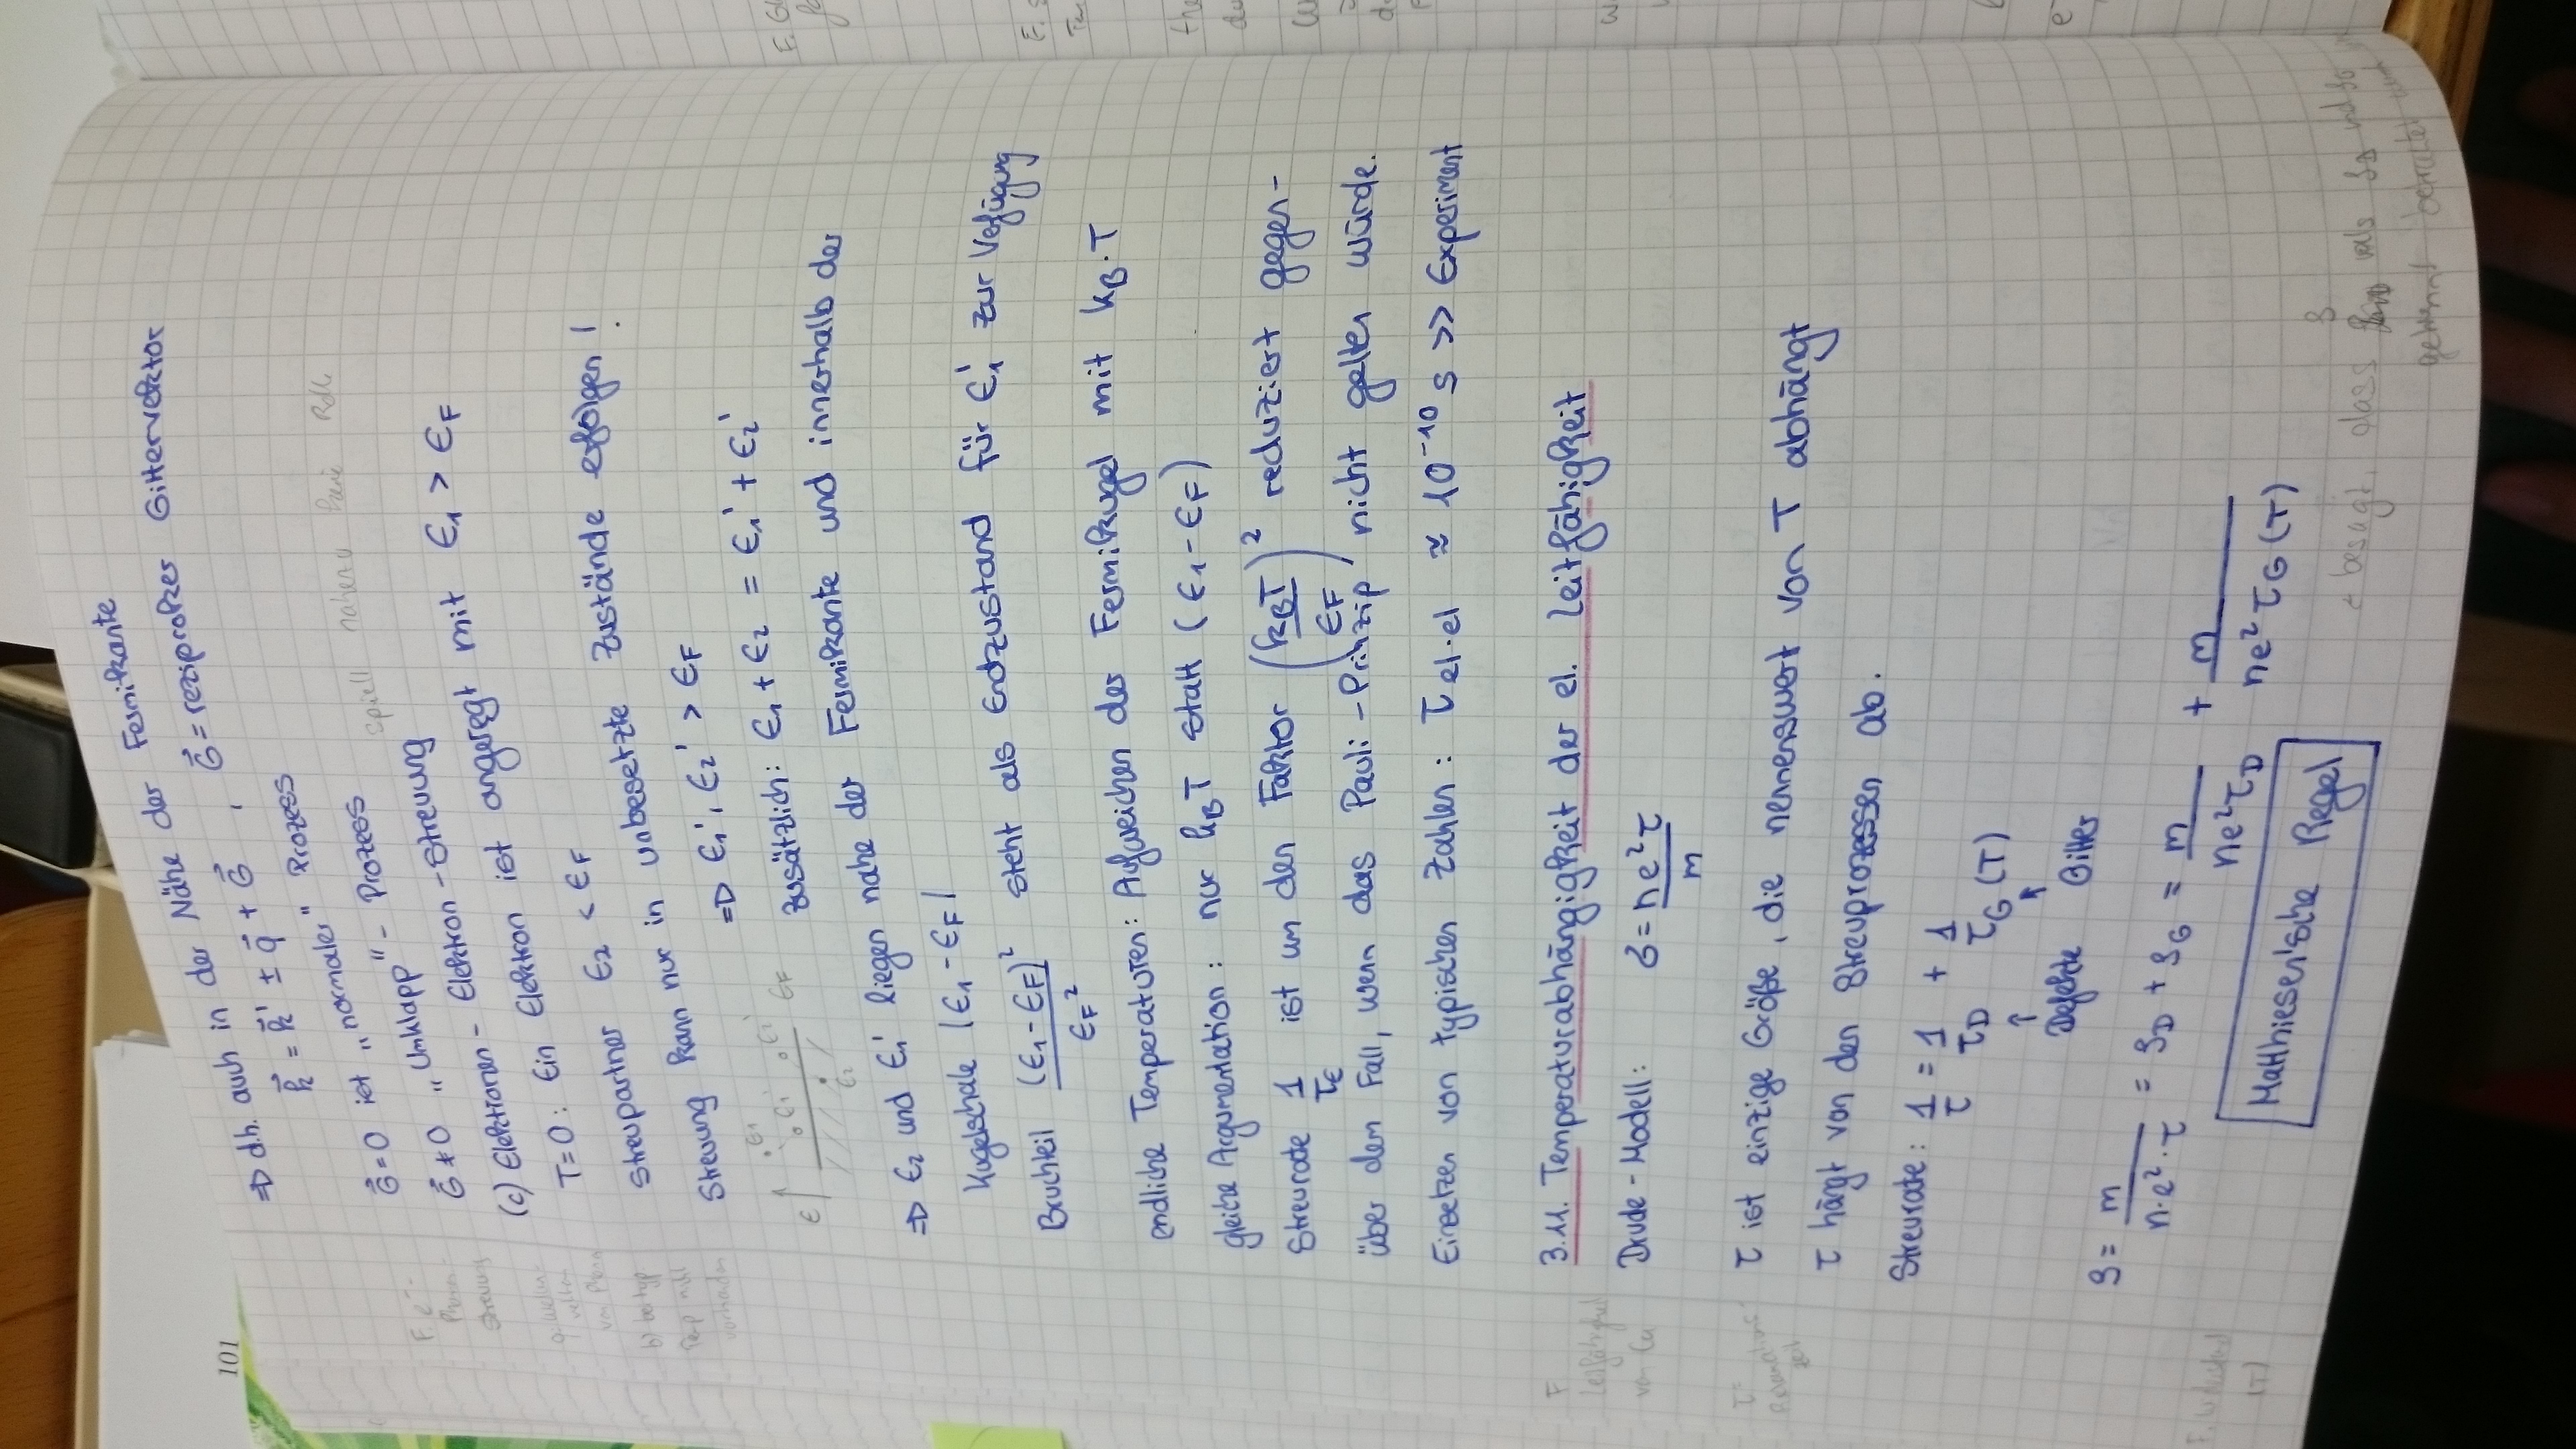 101
⇒ d.h. auch in der Nähe der Fermikante
k⃗ = k⃗' ± q⃗ + G⃗ , G⃗ = reziproker Gittervektor
G⃗ = 0 ist „normaler" Prozess
G⃗ ≠ 0 „Umklapp"- Prozess
(c) Elektronen - Elektron - Streuung
spielt keine Rolle
T=0: Ein Elektron ist angeregt mit ϵ₁ > ϵF
Streupartner ϵ₂ < ϵF
Streuung kann nur in unbesetzte Zustände erfolgen!
⇒ ϵ₁', ϵ₂' > ϵF
Zusätzlich: ϵ₁ + ϵ₂ = ϵ₁' + ϵ₂'
ϵ ϵ₁ ϵ₁' ϵ₂' ϵF
ϵ₂
⇒ ϵ₂ und ϵ₁' liegen nahe der Fermikante und innerhalb der
Kugelschale |ϵ₁ - ϵF|
Bruchteil (ϵ₁ - ϵF)² / ϵF² steht als Endzustand für ϵ₁' zur Verfügung
endliche Temperaturen: Aufweichen der Fermikugel mit kB·T
gleiche Argumentation: nur kBT statt (ϵ₁ - ϵF)
Streurate 1/τϵ ist um den Faktor (kBT/ϵF)² reduziert gegen-
über dem Fall, wenn das Pauli-Prinzip nicht gelten würde.
Einsetzen von typischen Zahlen: τ el.el ≈ 10⁻¹⁰ s >> Experiment
3.11. Temperaturabhängigkeit der el. Leitfähigkeit
F
Leitfähigkeit
von Cu
Drude-Modell: σ = ne²τ / m
τ =
Relaxations-
zeit
τ ist einzige Größe, die nennenswert von T abhängt
τ hängt von den Streuprozessen ab.
Streurate: 1/τ = 1/τD + 1/τG(T)
↑ ↑
Defekte Gitter
ρ = m / n·e²·τ = ρD + ρG = m / ne²τD + m / ne²τG(T)
Matthiesen'sche Regel
besagt, dass ρ als ρD und ρG
getrennt betrachtet
F. e⁻-
Phonon-
Streuung
von Phonon
b) bei typ.
Temp nicht
vorhanden
(T)